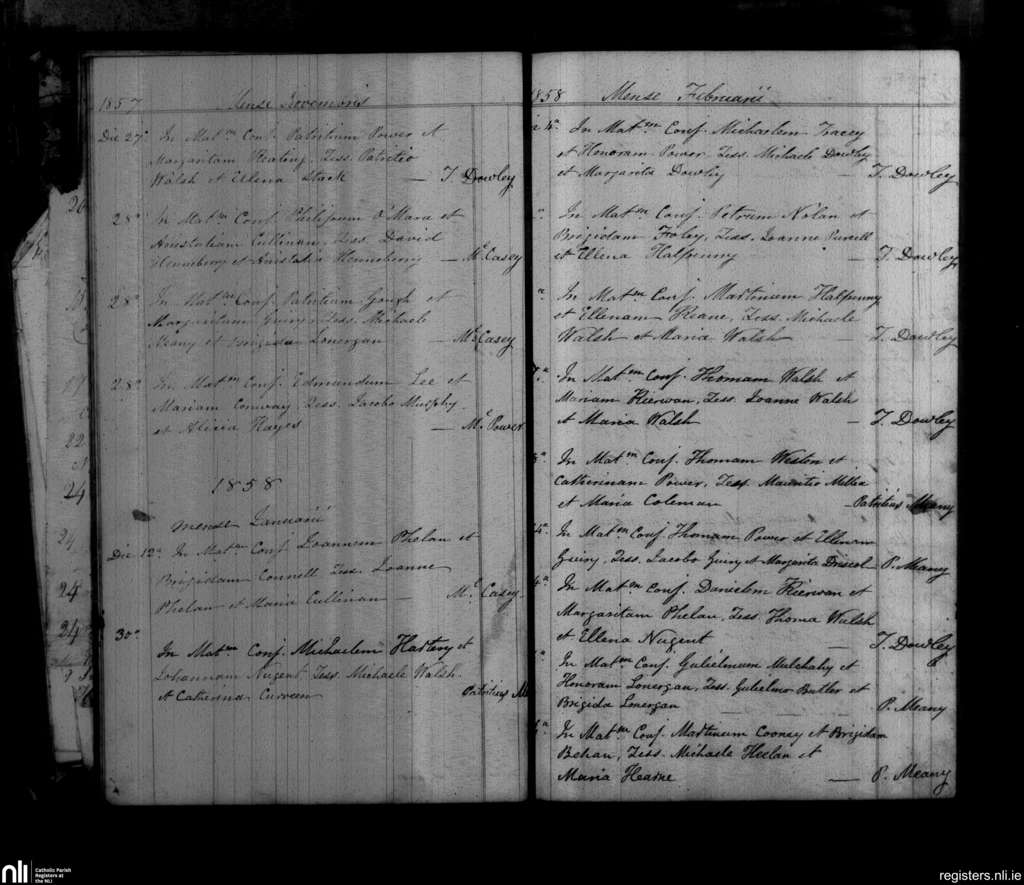 1857 Mense Novembris
Die 27a In Matm Conj. Patritium Power et
Margaritam Healing, Tess. Patritio
Walsh et Ellena Stack — T. Dowley
28a In Matm Conj. Philippum O'Mara et
Anistatiam Cullinan, Tess. David
Henneberry et Anistatia Henneberry — Mc. Casey
28a In Matm Conj. Patritium Gough et
Margaritam Guiry, Tess. Michaele
Meany et Brigida Lonergan — Mc. Casey
28a In Matm Conj. Edmundum Lee et
Mariam Conway, Tess. Jacobo Murphy
et Alicia Hayes — Mc. Power
1858
Mense Januarii
Die 12a. In Matm Conj. Joannem Phelan et
Brigidam Connell Tess. Joanne
Phelan et Maria Cullinan — Mc. Casey
30a
In Matm Conj. Michaelem Hartery et
Johannam Nugent, Tess. Michaele Walsh
et Catherina Curreen Patritius
1858 Mense Februarii
4a. In Matm Conj. Michaelem Tracey
et Honoram Power, Tess. Michaele Dowley
et Margarita Dowley — T. Dowley
a. In Matm Conj. Petrum Nolan et
Brigidam Foley, Tess. Joanne Purcell
et Ellena Halfpenny — T. Dowley
a In Matm Conj. Martinum Halfpenny
et Ellenam Keane, Tess. Michaele
Walsh et Maria Walsh — T. Dowley
7a. In Matm Conj. Thomam Walsh et
Mariam Kierwan, Tess. Joanne Walsh
et Maria Walsh — T. Dowley
8a. In Matm Conj. Thomam Weston et
Catherinam Power, Tess. Mauritio Millea
et Maria Coleman — Patritius Meany
4a. In Matm Conj. Thomam Power et Ellenam
Guiry, Tess. Jacobo Guiry et Margarita Driscol P. Meany
4a. In Matm Conj. Danielem Kierwan et
Margaritam Phelan, Tess. Thoma Walsh
et Ellena Nugent — T. Dowley
a In Matm Conj. Gulielmum Mulcahy et
Honoram Lonergan, Tess. Gulielmo Butler et
Brigida Lonergan — P. Meany
a. In Matm Conj. Martinum Cooney et Brigidam
Behan, Tess. Michaele Heelan et
Maria Hearne — P. Meany
nli Catholic Parish
Registers at
the NLI
registers.nli.ie